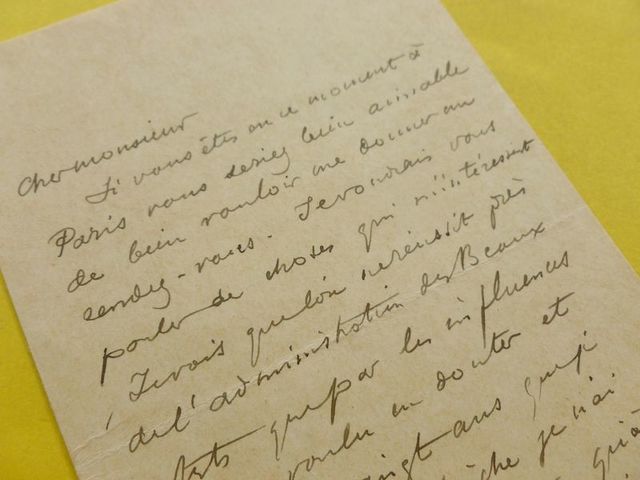 Cher monsieur
Si vous êtes en ce moment à
Paris vous seriez bien aimable
de bien vouloir me donner un
rendez-vous. Je voudrais vous
parler de choses qui m'intéressent
Je vois que l'on ne réussit près
de l'administration des Beaux
Arts que par les influences
voulu en douter et
vingt ans que j'
je n'ai